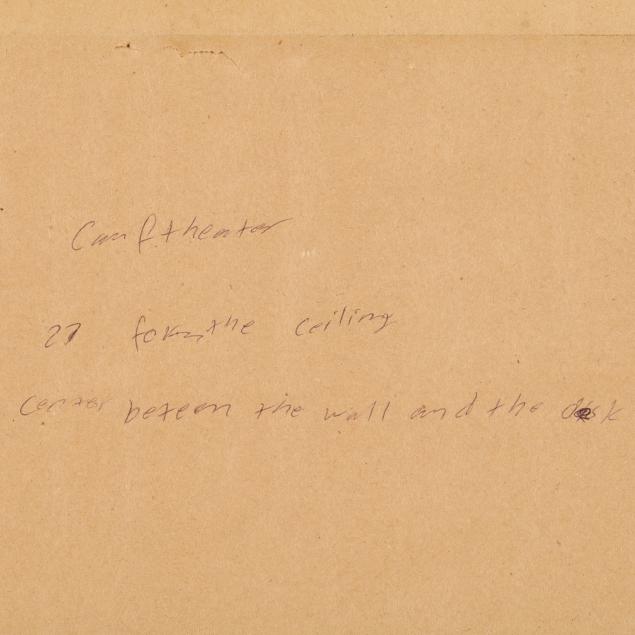 theater
27 the ceiling
center beteen the wall and the desk